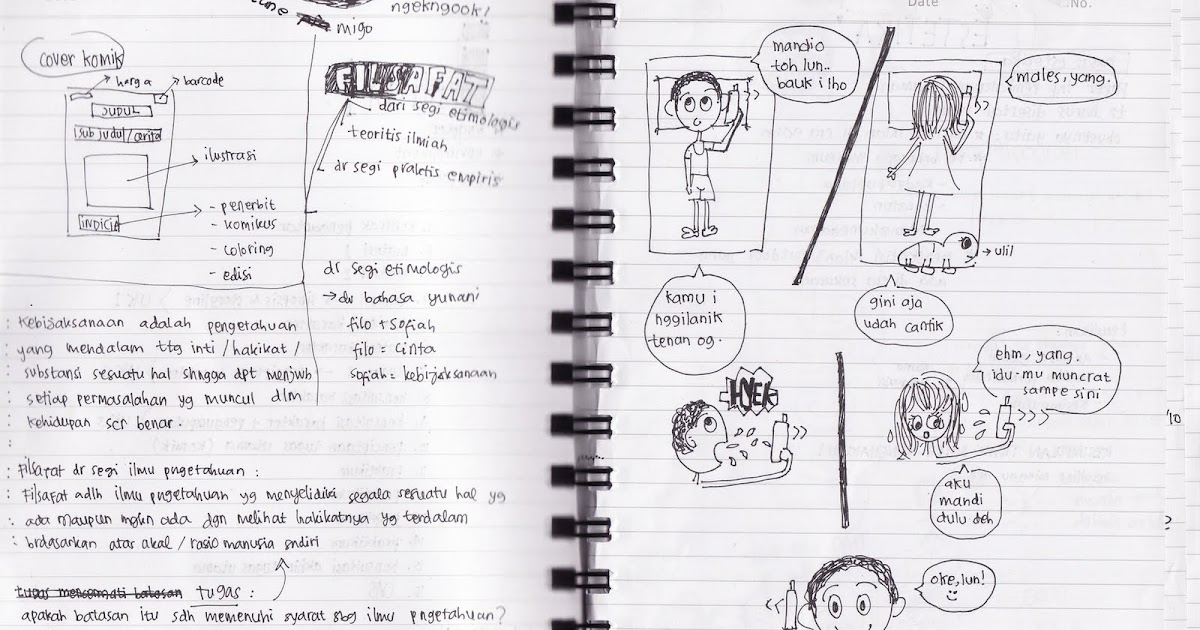 ngekngook!
migo
cover komik
harga
barcode
JUDUL
sub judul cerita
ilustrasi
INDICIA
- penerbit
- komikus
- coloring
- edisi
FILSAFAT
dari segi etimologis
teoritis ilmiah
dr segi praktis empiris
dr segi etimologis
→ dr bahasa yunani
filo + sofiah
filo = cinta
sofiah = kebijaksanaan
: Kebijaksanaan adalah pengetahuan
: yang mendalam ttg inti / hakikat /
: substansi sesuatu hal shngga dpt menjwb
: setiap permasalahan yg muncul dlm
: kehidupan scr benar.
:
: Filsafat dr segi ilmu pngetahuan :
: Filsafat adlh ilmu pngetahuan yg menyelidiki segala sesuatu hal yg
: ada maupun mgkn ada dgn melihat hakikatnya yg terdalam
: brdasarkan atas akal / rasio manusia sndiri
tugas :
apakah batasan itu sdh memenuhi syarat sbg ilmu pngetahuan?
Date
No.
mandio
toh lun..
bauk i lho
males, yang.
→ ulil
kamu i
nggilanik
tenan og.
gini aja
udah cantik
HYEK
ehm, yang.
idu-mu muncrat
sampe sini
aku
mandi
dulu deh
oke, lun!